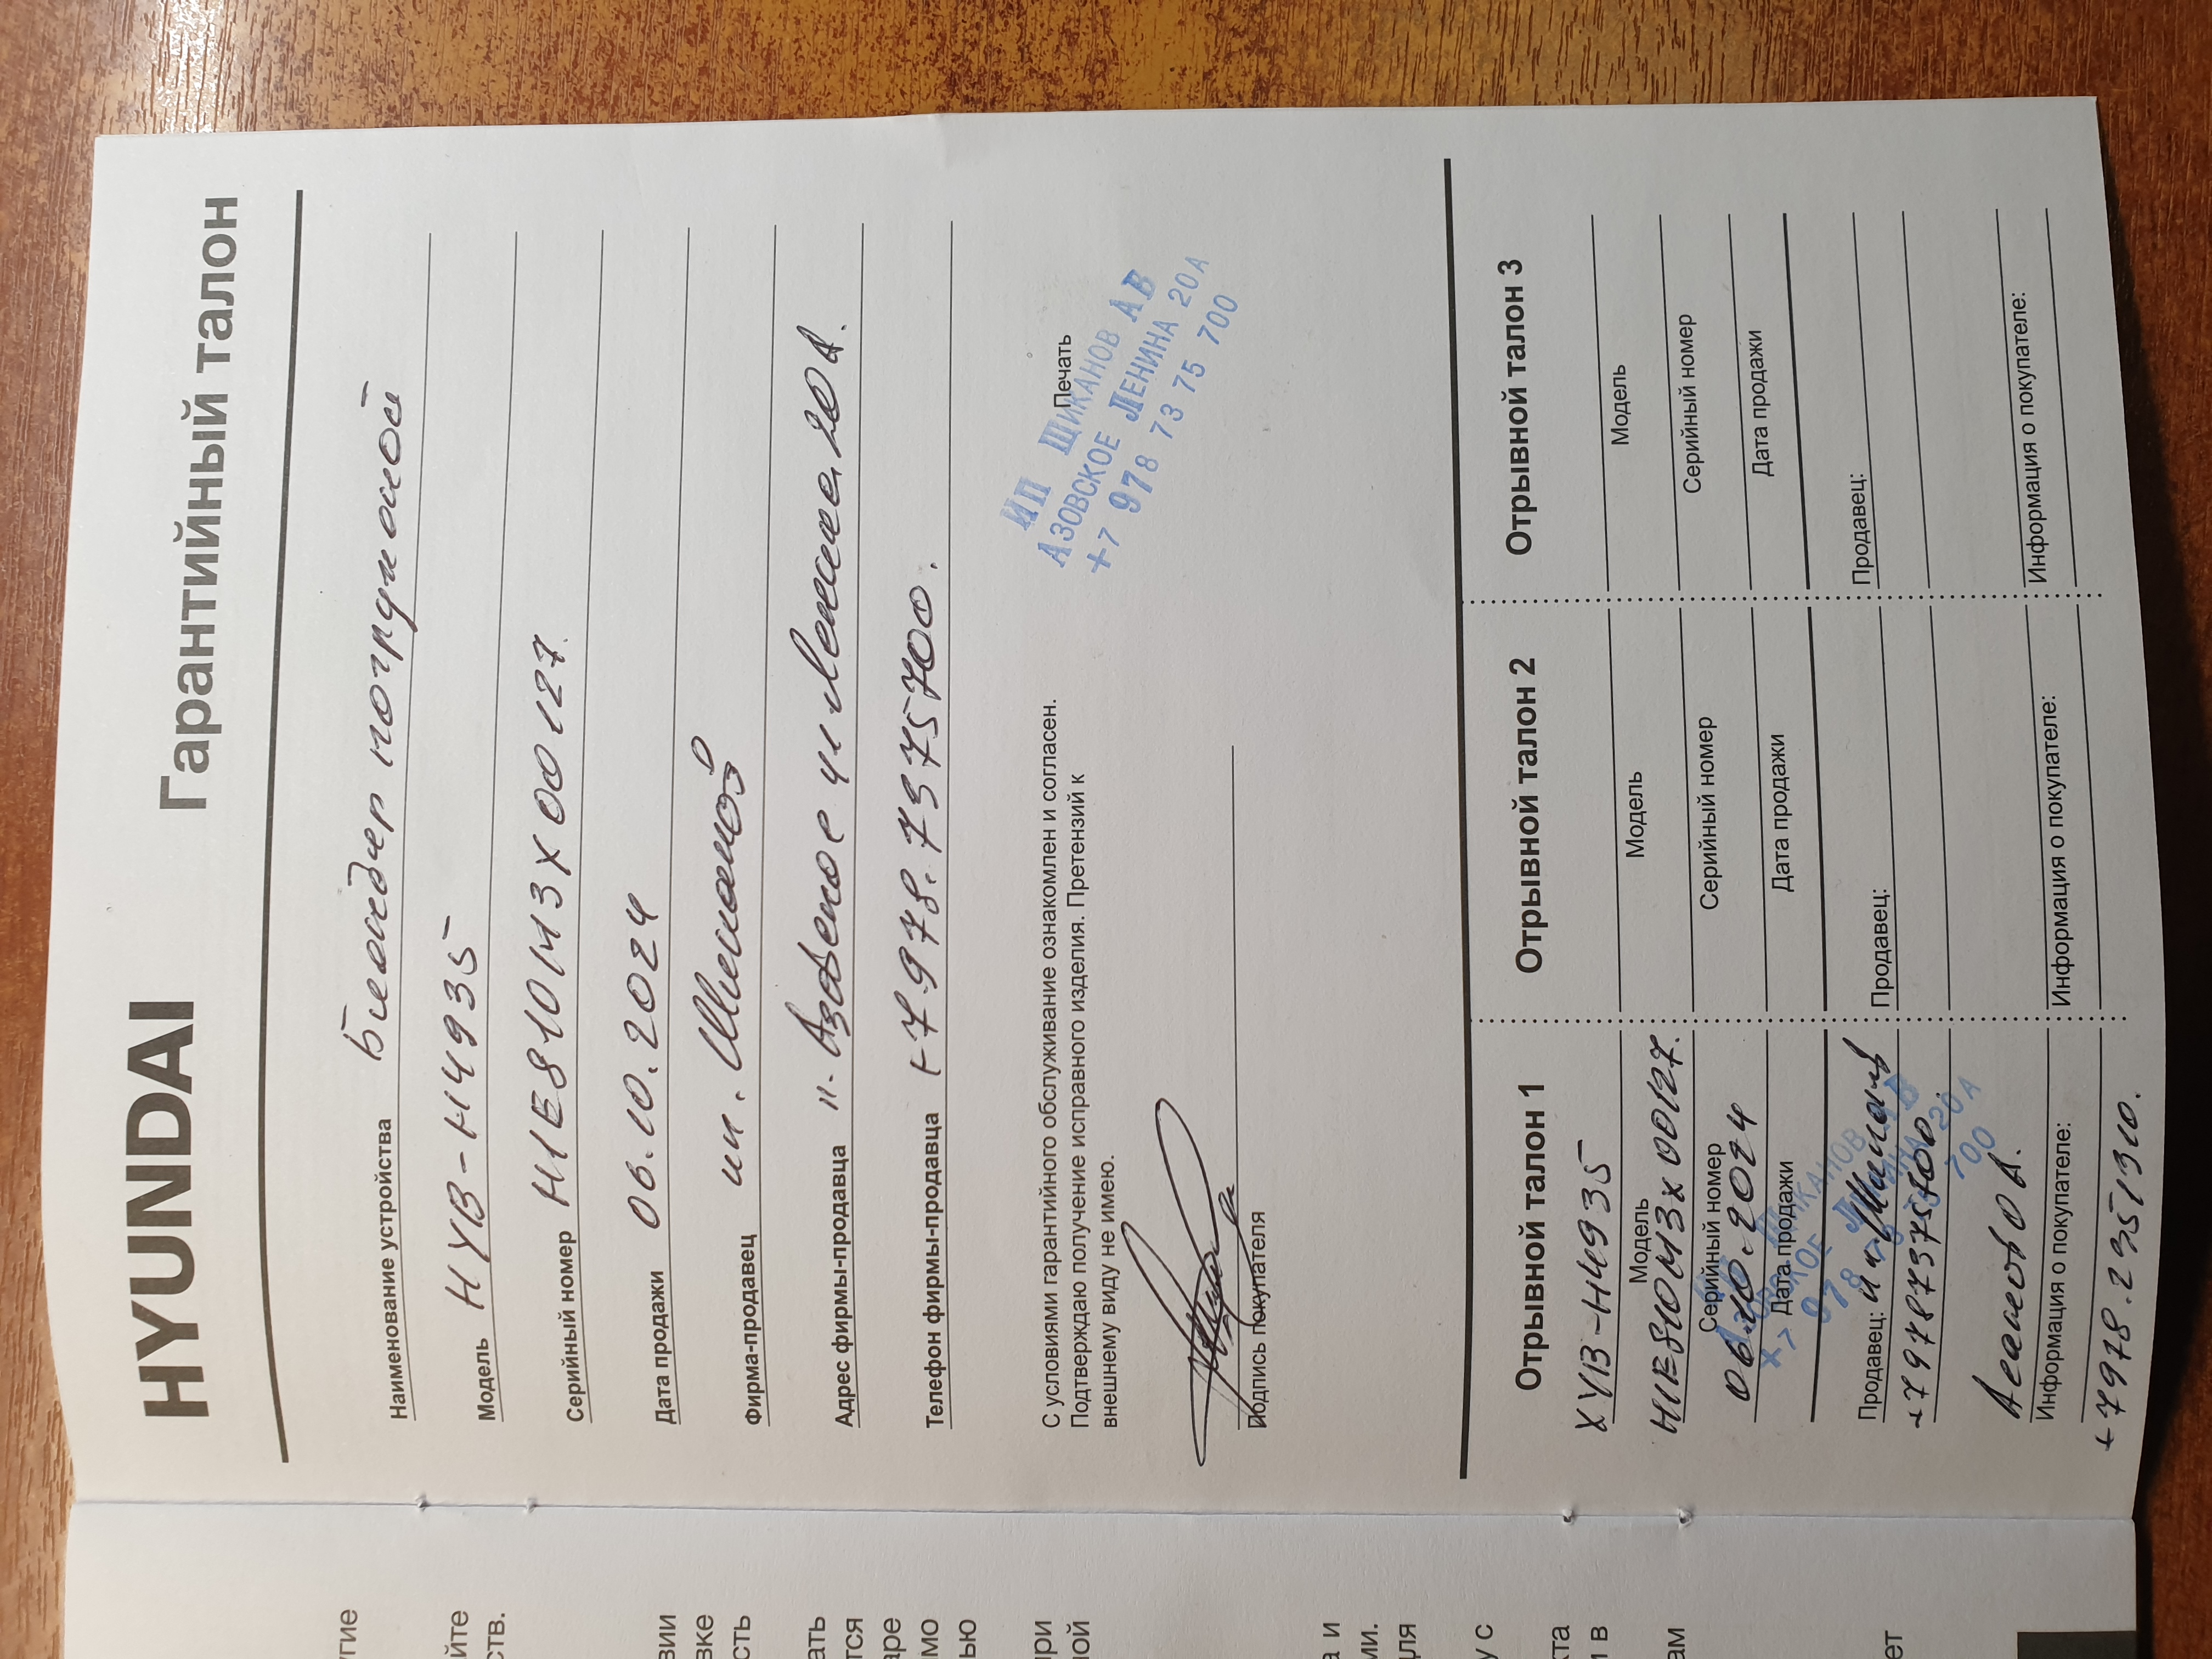 HYUNDAI Гарантийный талон
Наименование устройства Блендер погружной
Модель HYB-H4935
Серийный номер H1E810M3X00127.
Дата продажи 06.10.2024
Фирма-продавец ип.
Адрес фирмы-продавца п. Азовское ул Ленина 20 А.
Телефон фирмы-продавца +7.978.7375700.
С условиями гарантийного обслуживание ознакомлен и согласен.
Подтверждаю получение исправного изделия. Претензий к
внешнему виду не имею.
Подпись покупателя
Печать
ИП ШИКАНОВ АВ
АЗОВСКОЕ ЛЕНИНА 20А
+7 978 73 75 700
Отрывной талон 1
XYB-H4935
Модель
H1E810M3X00127.
Серийный номер
06.10.2024
Дата продажи
Продавец: ип Шиканов
+79787375700
Информация о покупателе:
+7978.2351310.
Отрывной талон 2
Модель
Серийный номер
Дата продажи
Продавец:
Информация о покупателе:
Отрывной талон 3
Модель
Серийный номер
Дата продажи
Продавец:
Информация о покупателе: